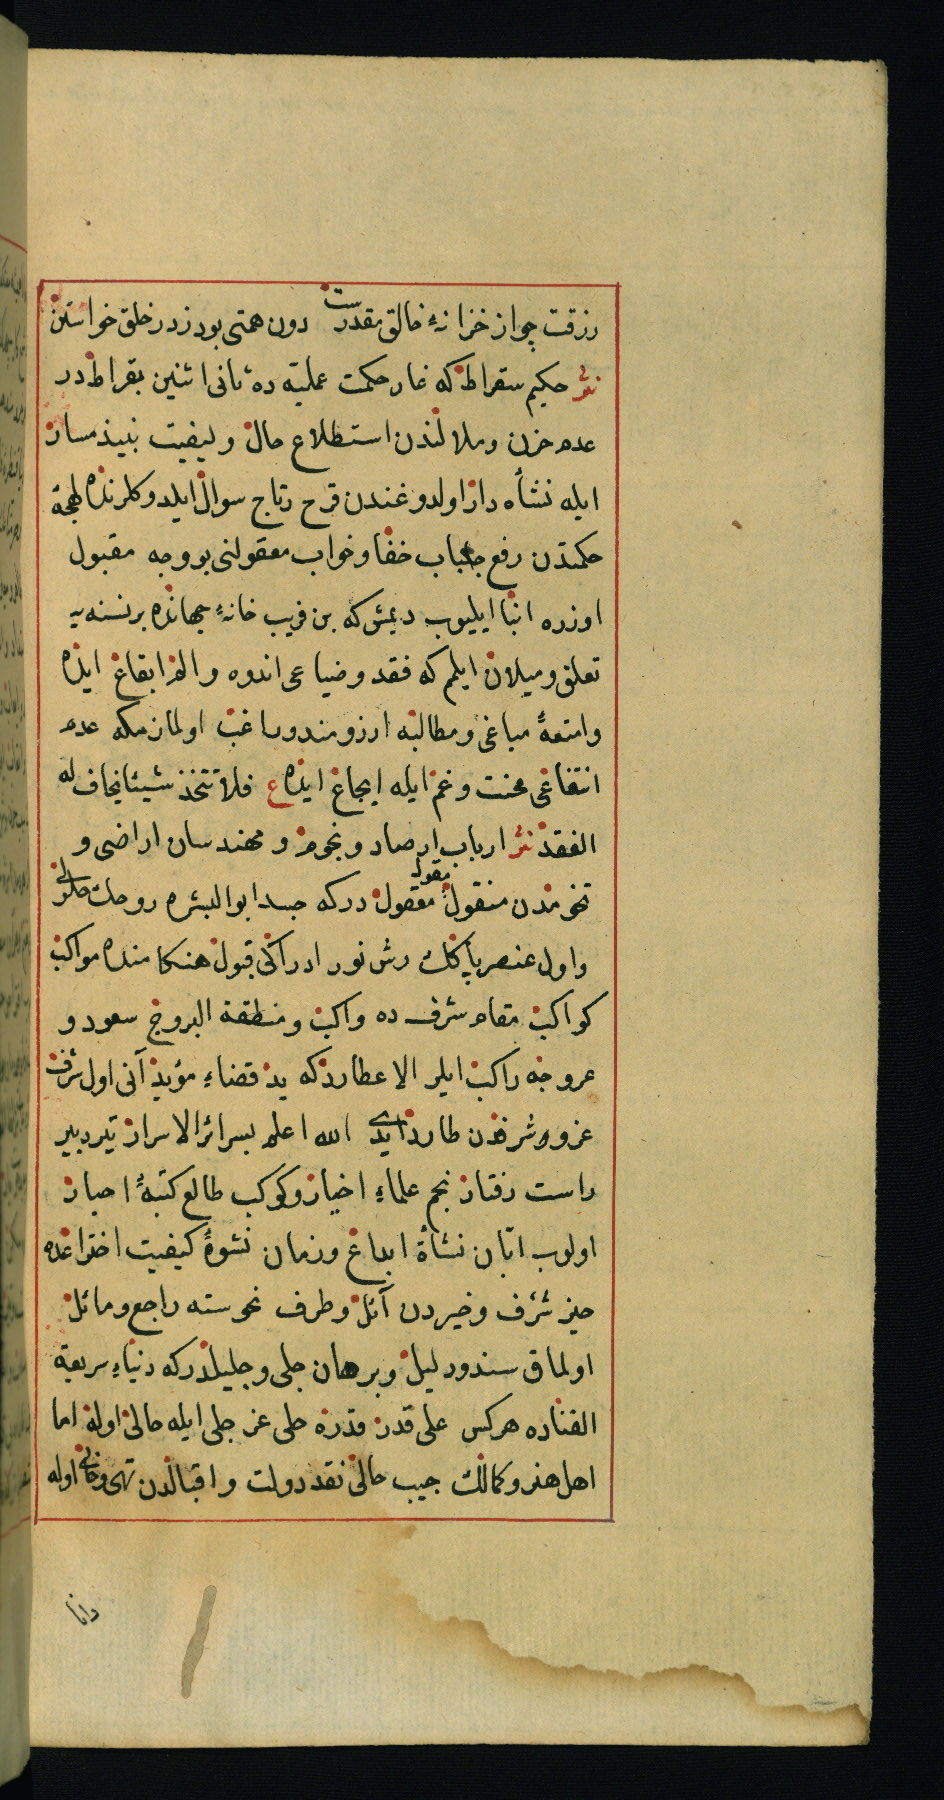 رزقت چو از خزانهٔ خالق مقدرست دون همتی بود ز در خلق خواستن
نثر حکیم سقراط که غار حکمت عملیه ده ثانی اثنین بقراط در
عدم حزن و ملالندن استطلاع حال و کیفیت نبیذ مسار
ایله نشأه دار اولدوغندن قرح رتاج سوال ایلدوکلرنده لهجهٔ
حکمتدن رفع جلباب خفا و خواب معقولنی بو وجه مقبول
اوزره انبا ایلیوب دیمش که بن فریب خانهٔ جهانده بر نسنه یه
تعلق و میلان ایلم که فقد و ضیاعی اندوه و الم ابقاع ایده
وامتعهٔ مباغی و مطالبه ارزومند و راغب اولمازمکه عدم
انتفاعی محنت و غم ایله ایجاع ایده ع فلا تتخذ شیئا یخاف له
الفقد نثر ارباب ارصاد و نجوم و مهندسان اراضی و
تخومدن منقول مقول معقول در که جسد ابو البشره روحک حلولی
و اول عنصر پاکک رش نور ادراکی قبول هنکامنده مواکب
کواکب مقام شرف ده واکب و منطقة البروج سعود و
عروجه راکب ایلر الا عطارد که ید قضاء مؤید آنی اول شرف
عز و شرفدن طارد ایدی الله اعلم بسرائر الاسرار تیر دبیر
راست رفتار نجم علماء اخیار و کوکب طالع کتبهٔ احبار
اولوب ابّان نشأة ابداع و زمان نشوهٔ کیفیت اختراعده
حیز شرف و خیردن آئل و طرف نحوسته راجع و مائل
اولماق سند و دلیل و برهان جلی و جلیلدر که دنیاء سریعة
الفناده هرکس علی قدر قدره حلی عز جلی ایله حالی اوله اما
اهل هنر و کمالک جیب حالی نقد دولت و اقبالدن تهی و خالی اوله
دانا